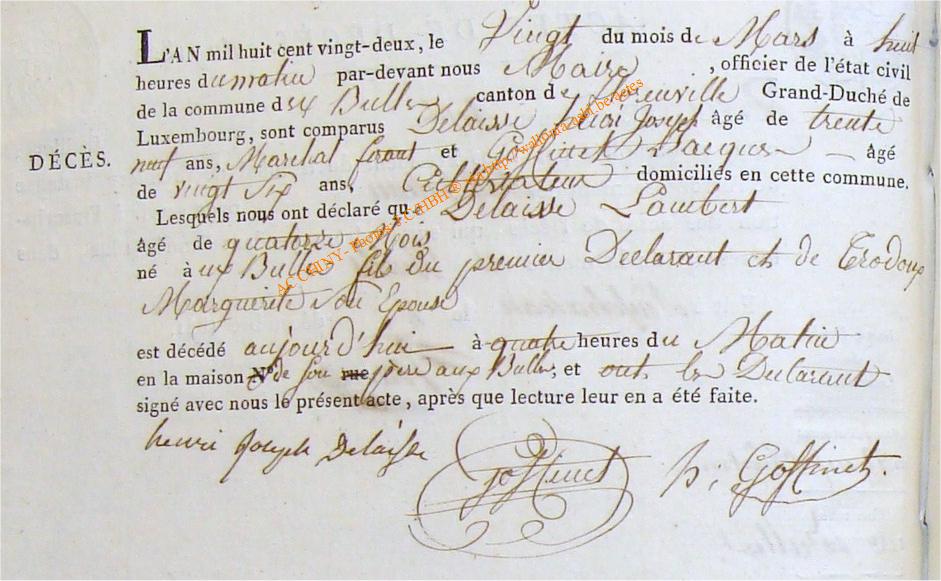 L'AN mil huit cent vingt-deux, le Vingt du mois de Mars à huit
heures du matin par-devant nous Maire , officier de l'état civil
de la commune d Bulles canton de Grand-Duché de
Luxembourg, sont comparus Delaisse henri Joseph âgé de trente
DÉCÈS.
neuf ans, Marchal ferant et Goffinet Jacques âgé
de vingt Six ans, Cultivateur domiciliés en cette commune.
Lesquels nous ont déclaré qu Delaisse Lambert
âgé de quatorze Mois
né à ux Bulles fils du premier Declarant et de
Marguerite Son Epouse
est décédé aujourd'hui à quatre heures du Matin
en la maison N° de son rue pere aux Bulles, et ont les Declarant
signé avec nous le présent acte, après que lecture leur en a été faite.
henri Joseph Delaisse Goffinet Goffinet.
ACCHINY - Photos